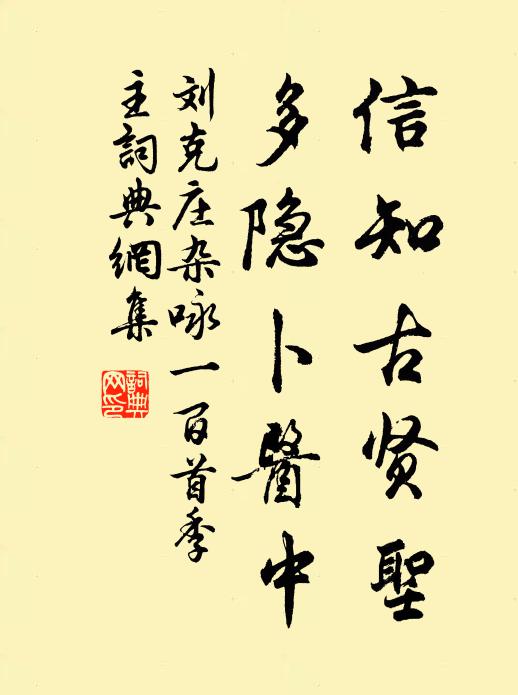 信知古贤聖
多隐卜醫中
刘克庄杂咏一百首季
主詞典網集
詞典
网印